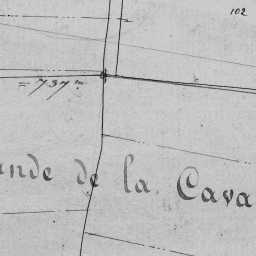 102
= 737 m
ande de la Cava